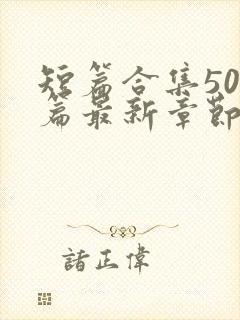 短篇合集50
篇最新章節
諸正偉